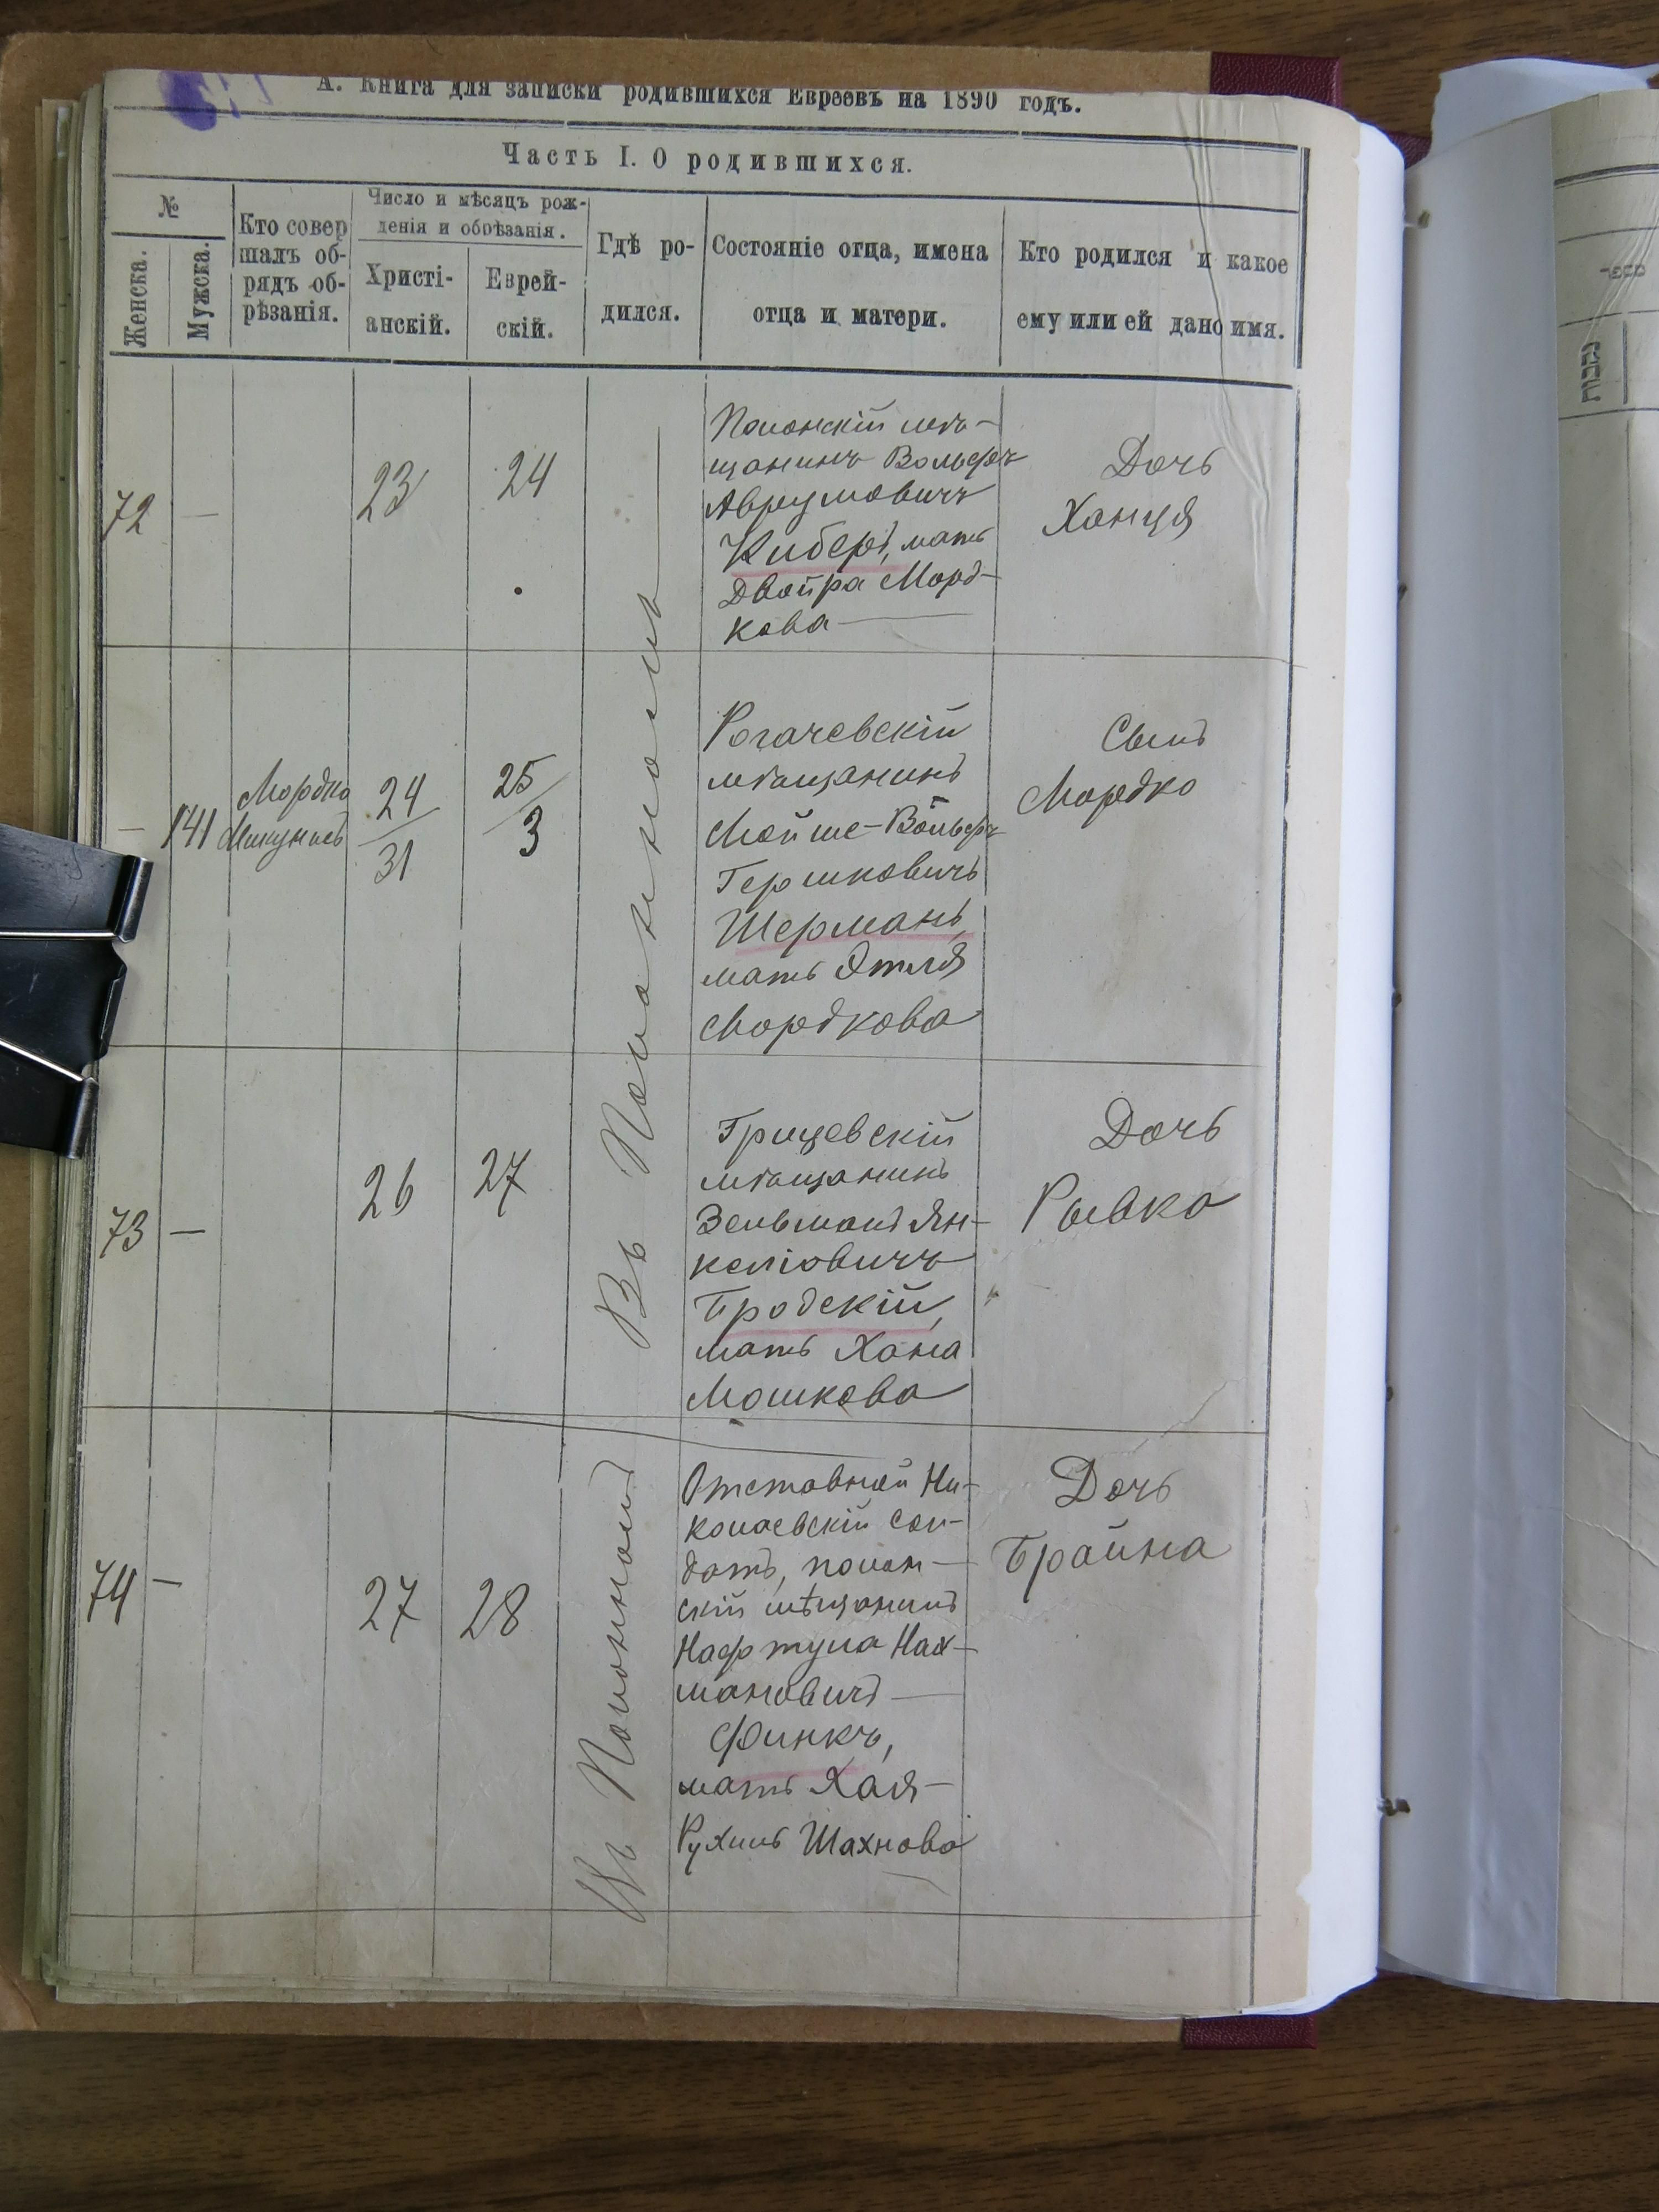 А. Книга для записки родившихся Евреевъ на 1890 годъ.
Часть I. О родившихся.
№
Женска.
Мужска.
Кто совер
шалъ об-
рядъ об-
рѣзанія.
Число и мѣсяцъ рож-
денія и обрѣзанія.
Христі-
анскій.
Еврей-
скій.
Гдѣ ро-
дился.
Состояніе отца, имена
отца и матери.
Кто родился и какое
ему или ей дано имя.
72
—
23
24
Полонскій мѣ-
щанинъ Вольфъ
Аврумовичъ
Киберъ, мать
Двойра Морд-
кова
Дочь
Ханця
—
141
Мордко
24
31
25
3
Рогачевскій
мѣщанинъ
Мойше-Вольфъ
Гершковичъ
Шерманъ,
мать Этля
Мордкова
Сынъ
Мордко
Въ Полонномъ
73
—
26
27
Грицевскій
мѣщанинъ
Зельманъ Ян-
келіовичъ
Бродскій,
мать Хана
Мошкова
Дочь
Рывка
74
—
27
28
Въ Полонномъ
Отставной Ни-
колаевскій сол-
датъ, полон-
скій мѣщанинъ
Нафтула Нах-
мановичъ
Финкъ,
мать Хая-
Рухль Шахнова
Дочь
Брайна